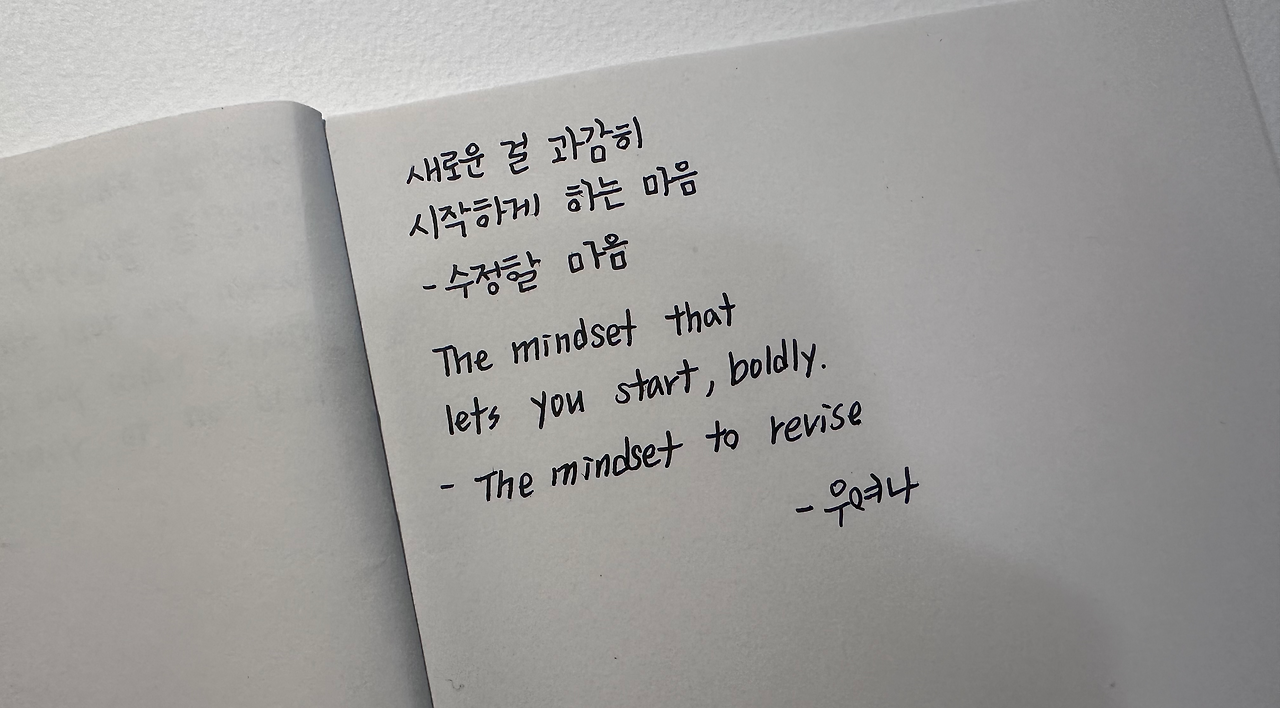 새로운 걸 과감히
시작하게 하는 마음
- 수정할 마음
The mindset that
lets you start, boldly.
- The mindset to revise